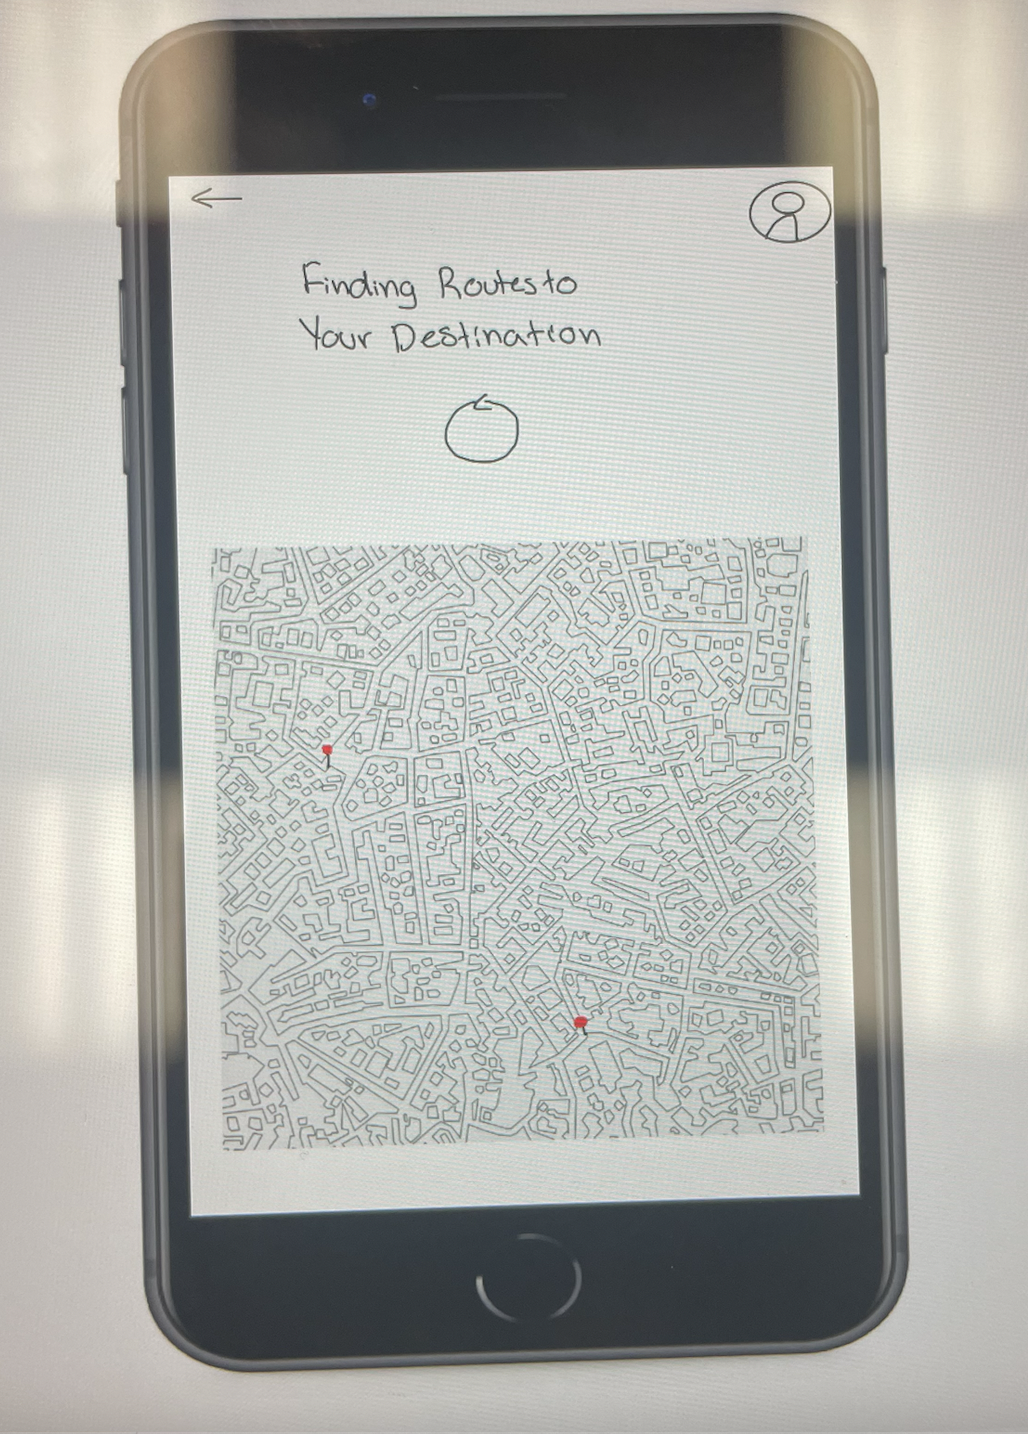 Finding Routes to
Your Destination